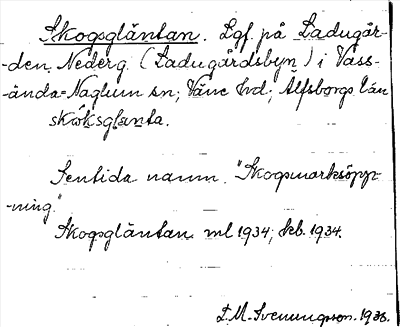 Skogsgläntan. Lgf. på Ladugår-
-den, Nederg. (Ladugårdsbyn) i Vass-
-ända=Naglum sn; Väne hd; Älfsborgs län
skɷ́ksglanta.
Sentida namn. "Skogsmarksöpp-
-ning."
Skogsgläntan ml 1934; kb. 1934.
L.M. Svenungsson. 1936.